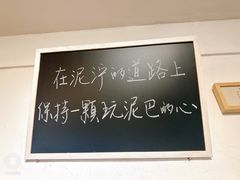 在泥濘的道路上
保持一顆玩泥巴的心